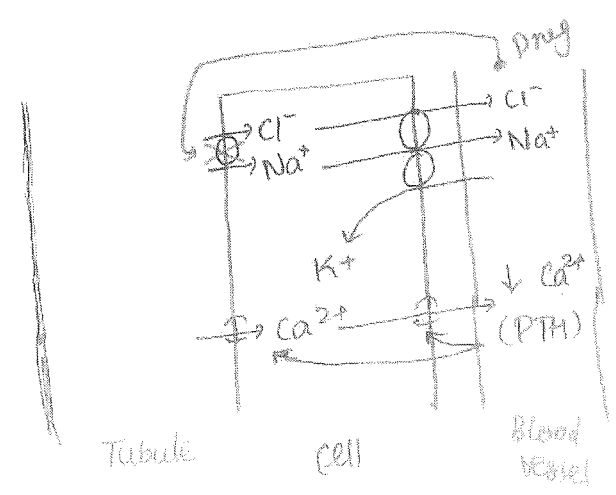 Drug
Cl⁻ Cl⁻
Na⁺ Na⁺
K+
Ca²⁺ ↓ Ca²⁺
(PTH)
Tubule Cell Blood
Vessel